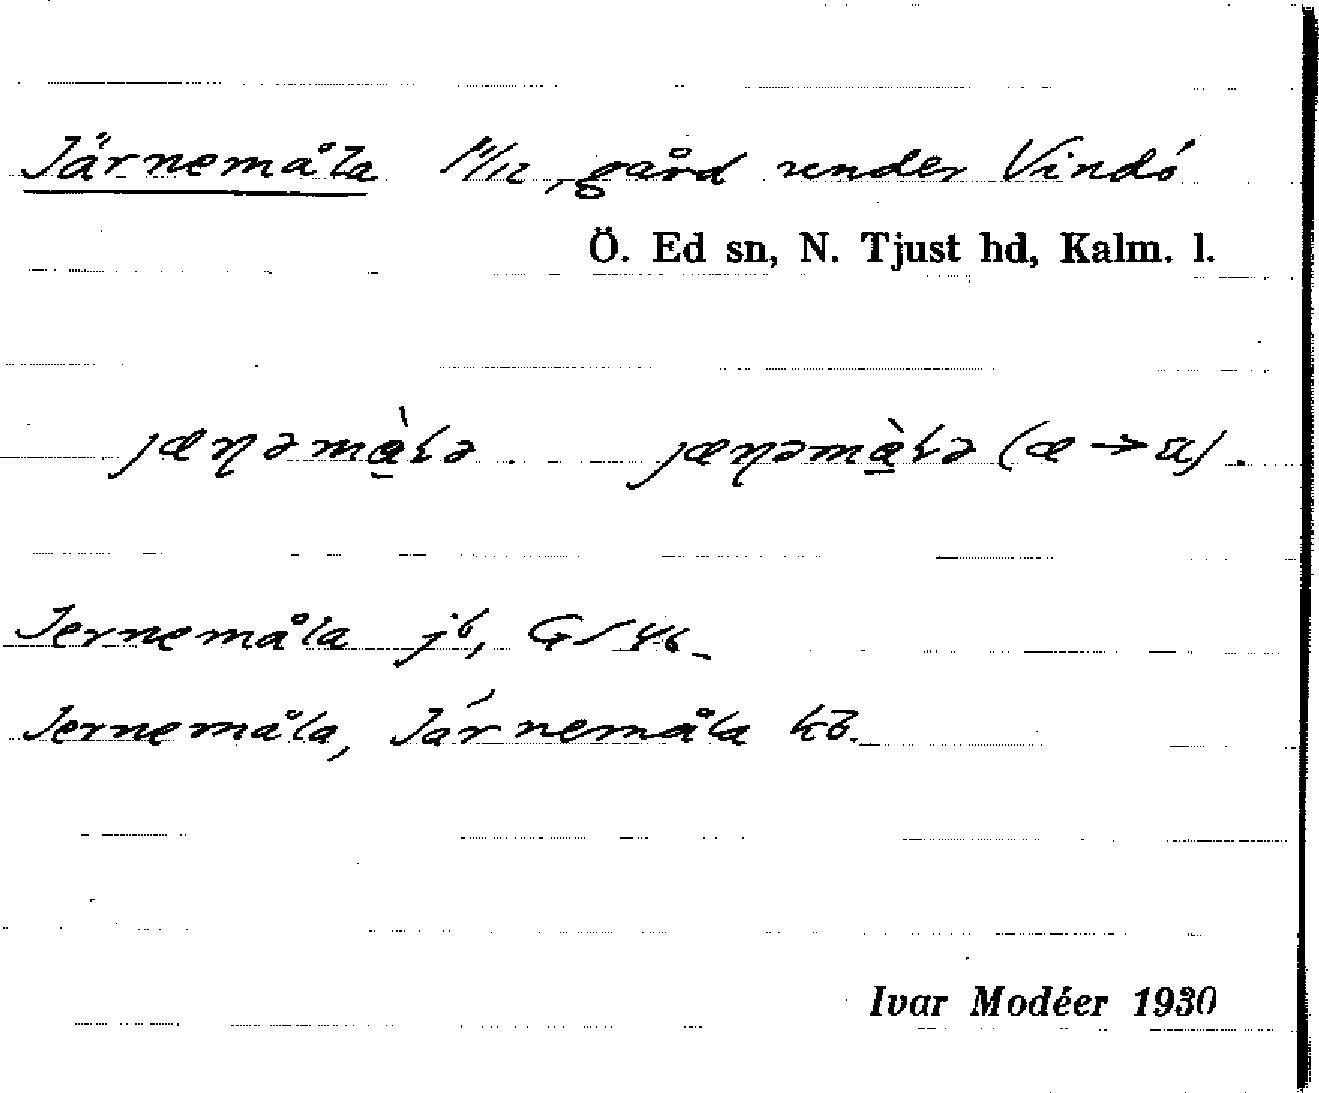 Järnemåla 11/12, gård under Vindö
Ö. Ed sn, N. Tjust hd, Kalm. l.
Jernemåla jb, GS 46.
Jernemåla, Järnemåla kb.
Ivar Modéer 1930